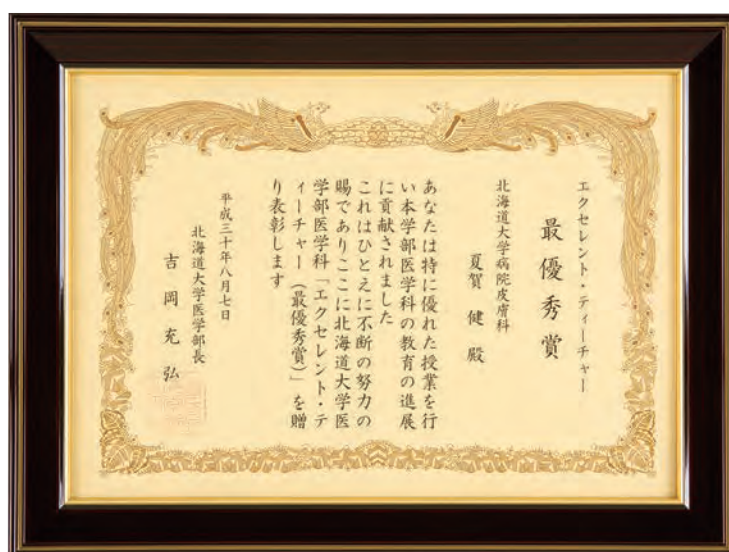 エクセレント・ティーチャー
最優秀賞
北海道大学病院皮膚科
夏賀 健 殿
あなたは特に優れた授業を行
い本学部医学科の教育の進展
に貢献されました
これはひとえに不断の努力の
賜でありここに北海道大学医
学部医学科「エクセレント・テ
ィーチャー(最優秀賞)」を贈
り表彰します
平成三十年八月七日
北海道大学医学部長
吉岡充弘